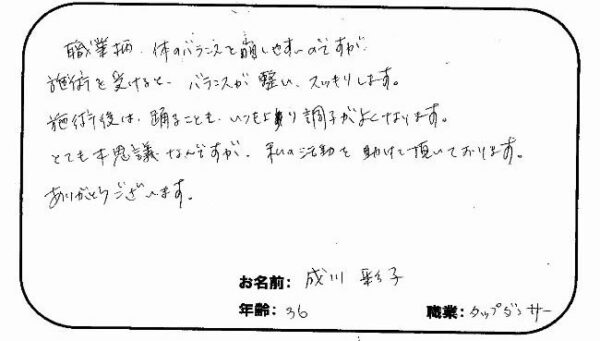 職業柄、体のバランスを崩しやすいのですが、
施術を受けると、バランスが整い、スッキリします。
施術後は、踊ることも、いつもより調子がよくなります。
とても不思議なんですが、私の活動を助けて頂いております。
ありがとうございます。
お名前: 成川 彩子
年齢: 36 職業: タップダンサー